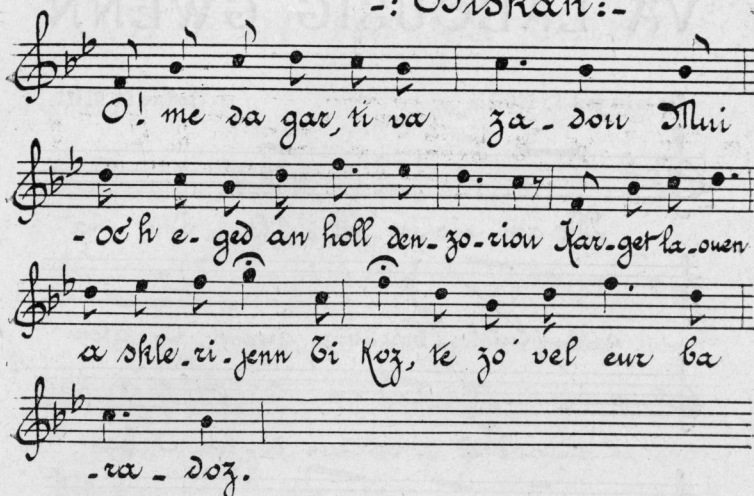 -: Diskan :-
O! me da gar, ti va za - dou Mui
- oc'h e - ged an holl den - zo - riou Kar - get la - ouen
a skle - ri - jenn Ti Koz, te zo vel eur ba
- ra - doz.